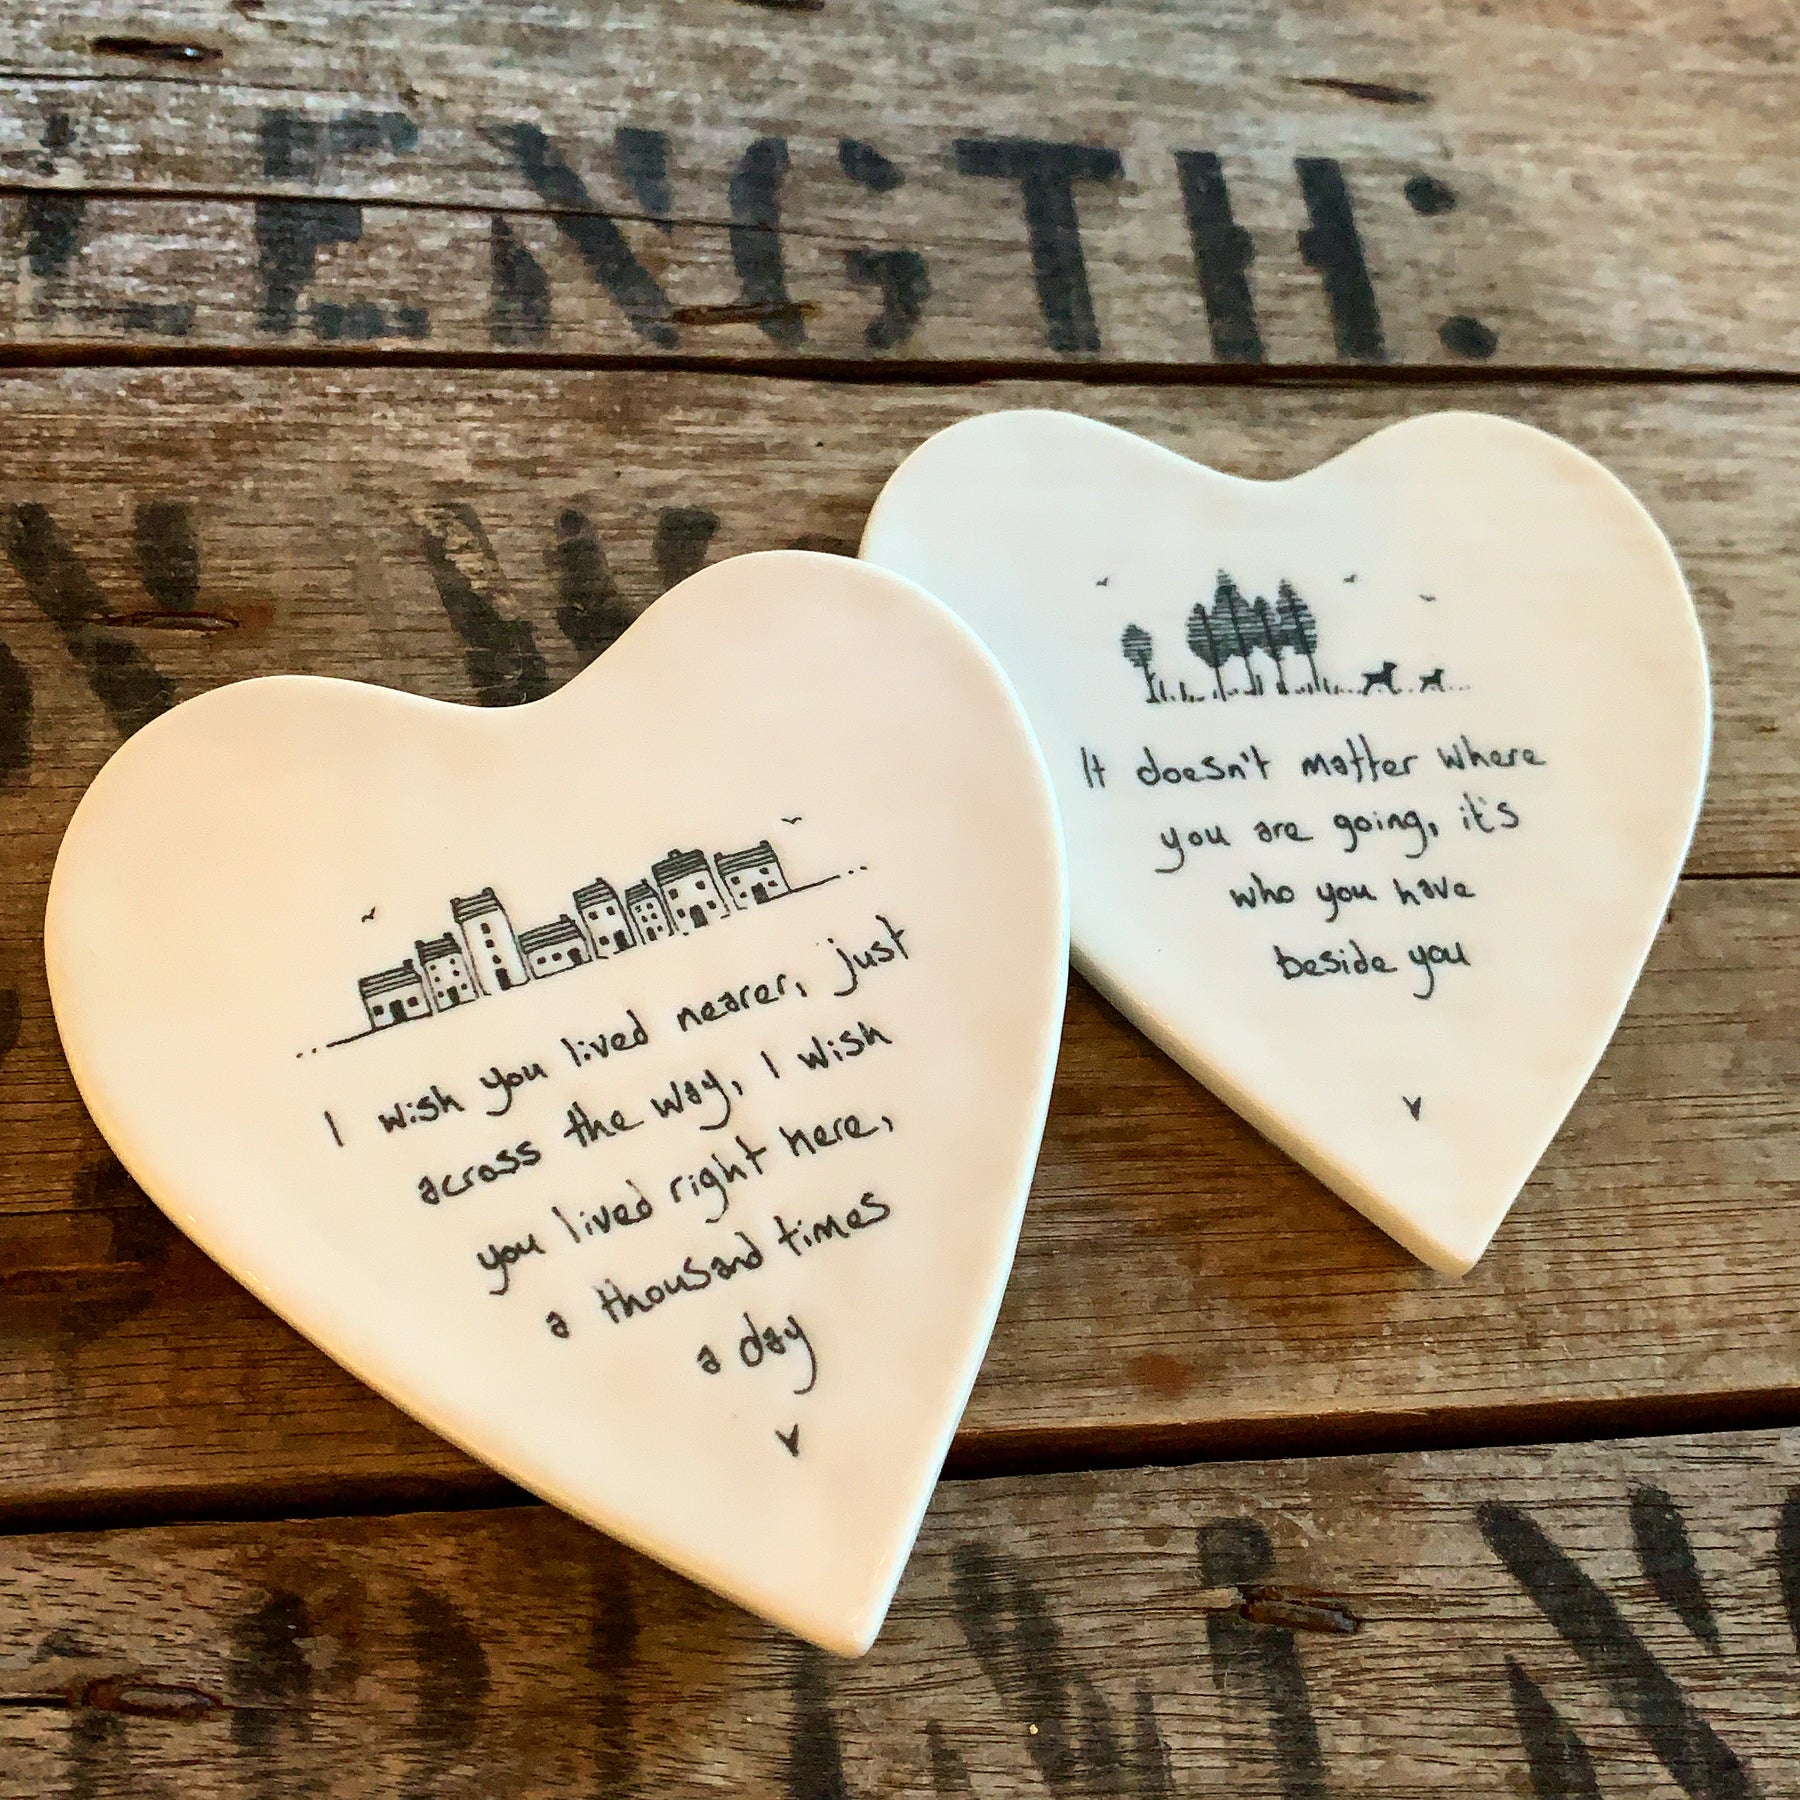 LENGTH:
It doesn't matter where
you are going, it's
who you have
beside you
I wish you lived nearer, just
across the way, I wish
you lived right here,
a thousand times
a day